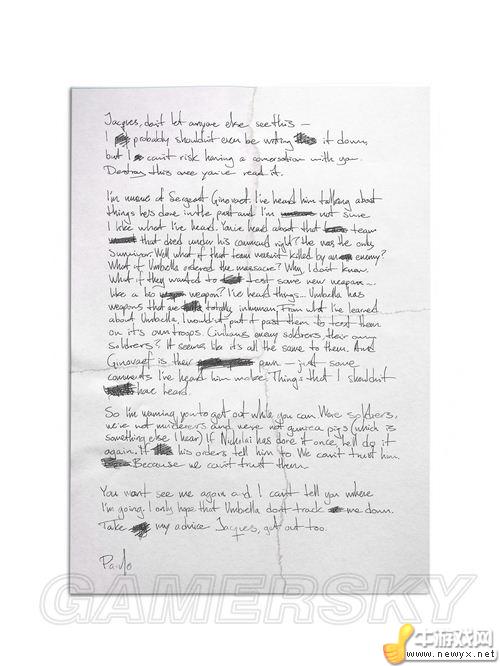 Jacques, don't let anyone else see this –
I probably shouldn't even be writing it down,
but I can't risk having a conversation with you.
Destroy this once you've read it.
I'm unsure of Sergeant Ginovaef. I've heard him talking about
things he's done in the past and I'm not sure
I like what I've heard. You've heard about that team
that died under his command right? He was the only
survivor. Well what if that team wasn't killed by an enemy?
What if Umbrella ordered the massacre? Why, I don't know.
What if they wanted to test some new weapon...
like a bio weapon? I've heard things... Umbrella has
weapons that are totally inhuman. From what I've learned
about Umbrella, I wouldn't put it past them to test them
on it's own troops. Civilians enemy soldiers their own
soldiers? It seems like it's all the same to them. And
Ginovaef is their pawn – just some
comments I've heard him make. Things that I shouldn't
have heard.
So I'm warning you to get out while you can. We're soldiers,
we're not murderers and we're not guinea pigs (which is
something else I hear) If Nicholai has done it once, he'll do it
again. If his orders tell him to. We can't trust him.
Because we can't trust them.
You won't see me again and I can't tell you where
I'm going. I only hope that Umbrella don't track me down.
Take my advice Jacques, get out too.
Paulo
GAMERSKY
牛游戏网
www.newyx.net